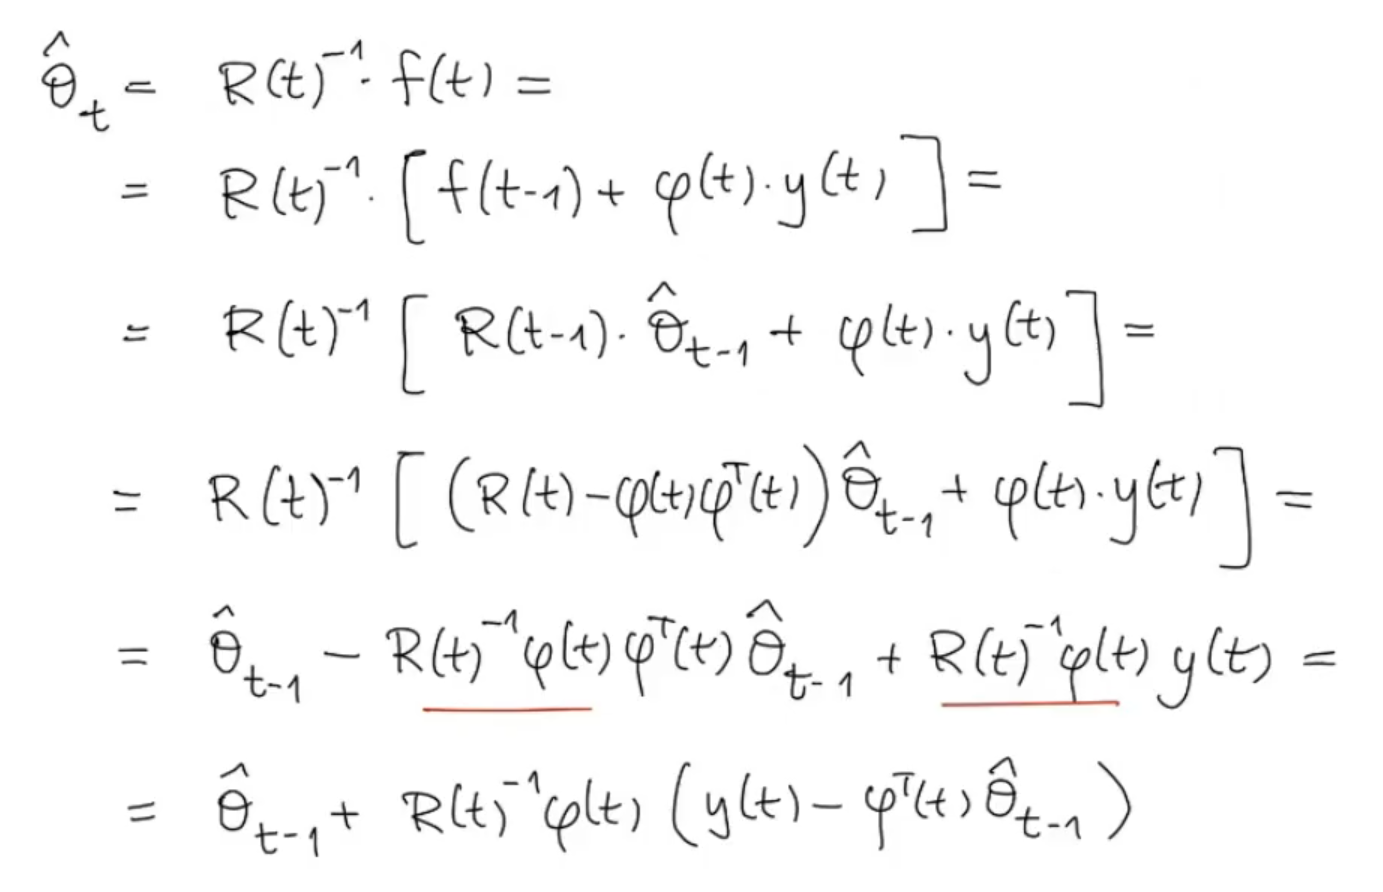 θ̂_t = R(t)⁻¹· f(t) =
= R(t)⁻¹· [ f(t-1) + φ(t)·y(t) ] =
= R(t)⁻¹ [ R(t-1)· θ̂_{t-1} + φ(t)·y(t) ] =
= R(t)⁻¹ [ (R(t) - φ(t)φᵀ(t)) θ̂_{t-1} + φ(t)·y(t) ] =
= θ̂_{t-1} - R(t)⁻¹φ(t)φᵀ(t) θ̂_{t-1} + R(t)⁻¹φ(t) y(t) =
= θ̂_{t-1} + R(t)⁻¹φ(t) (y(t) - φᵀ(t) θ̂_{t-1})